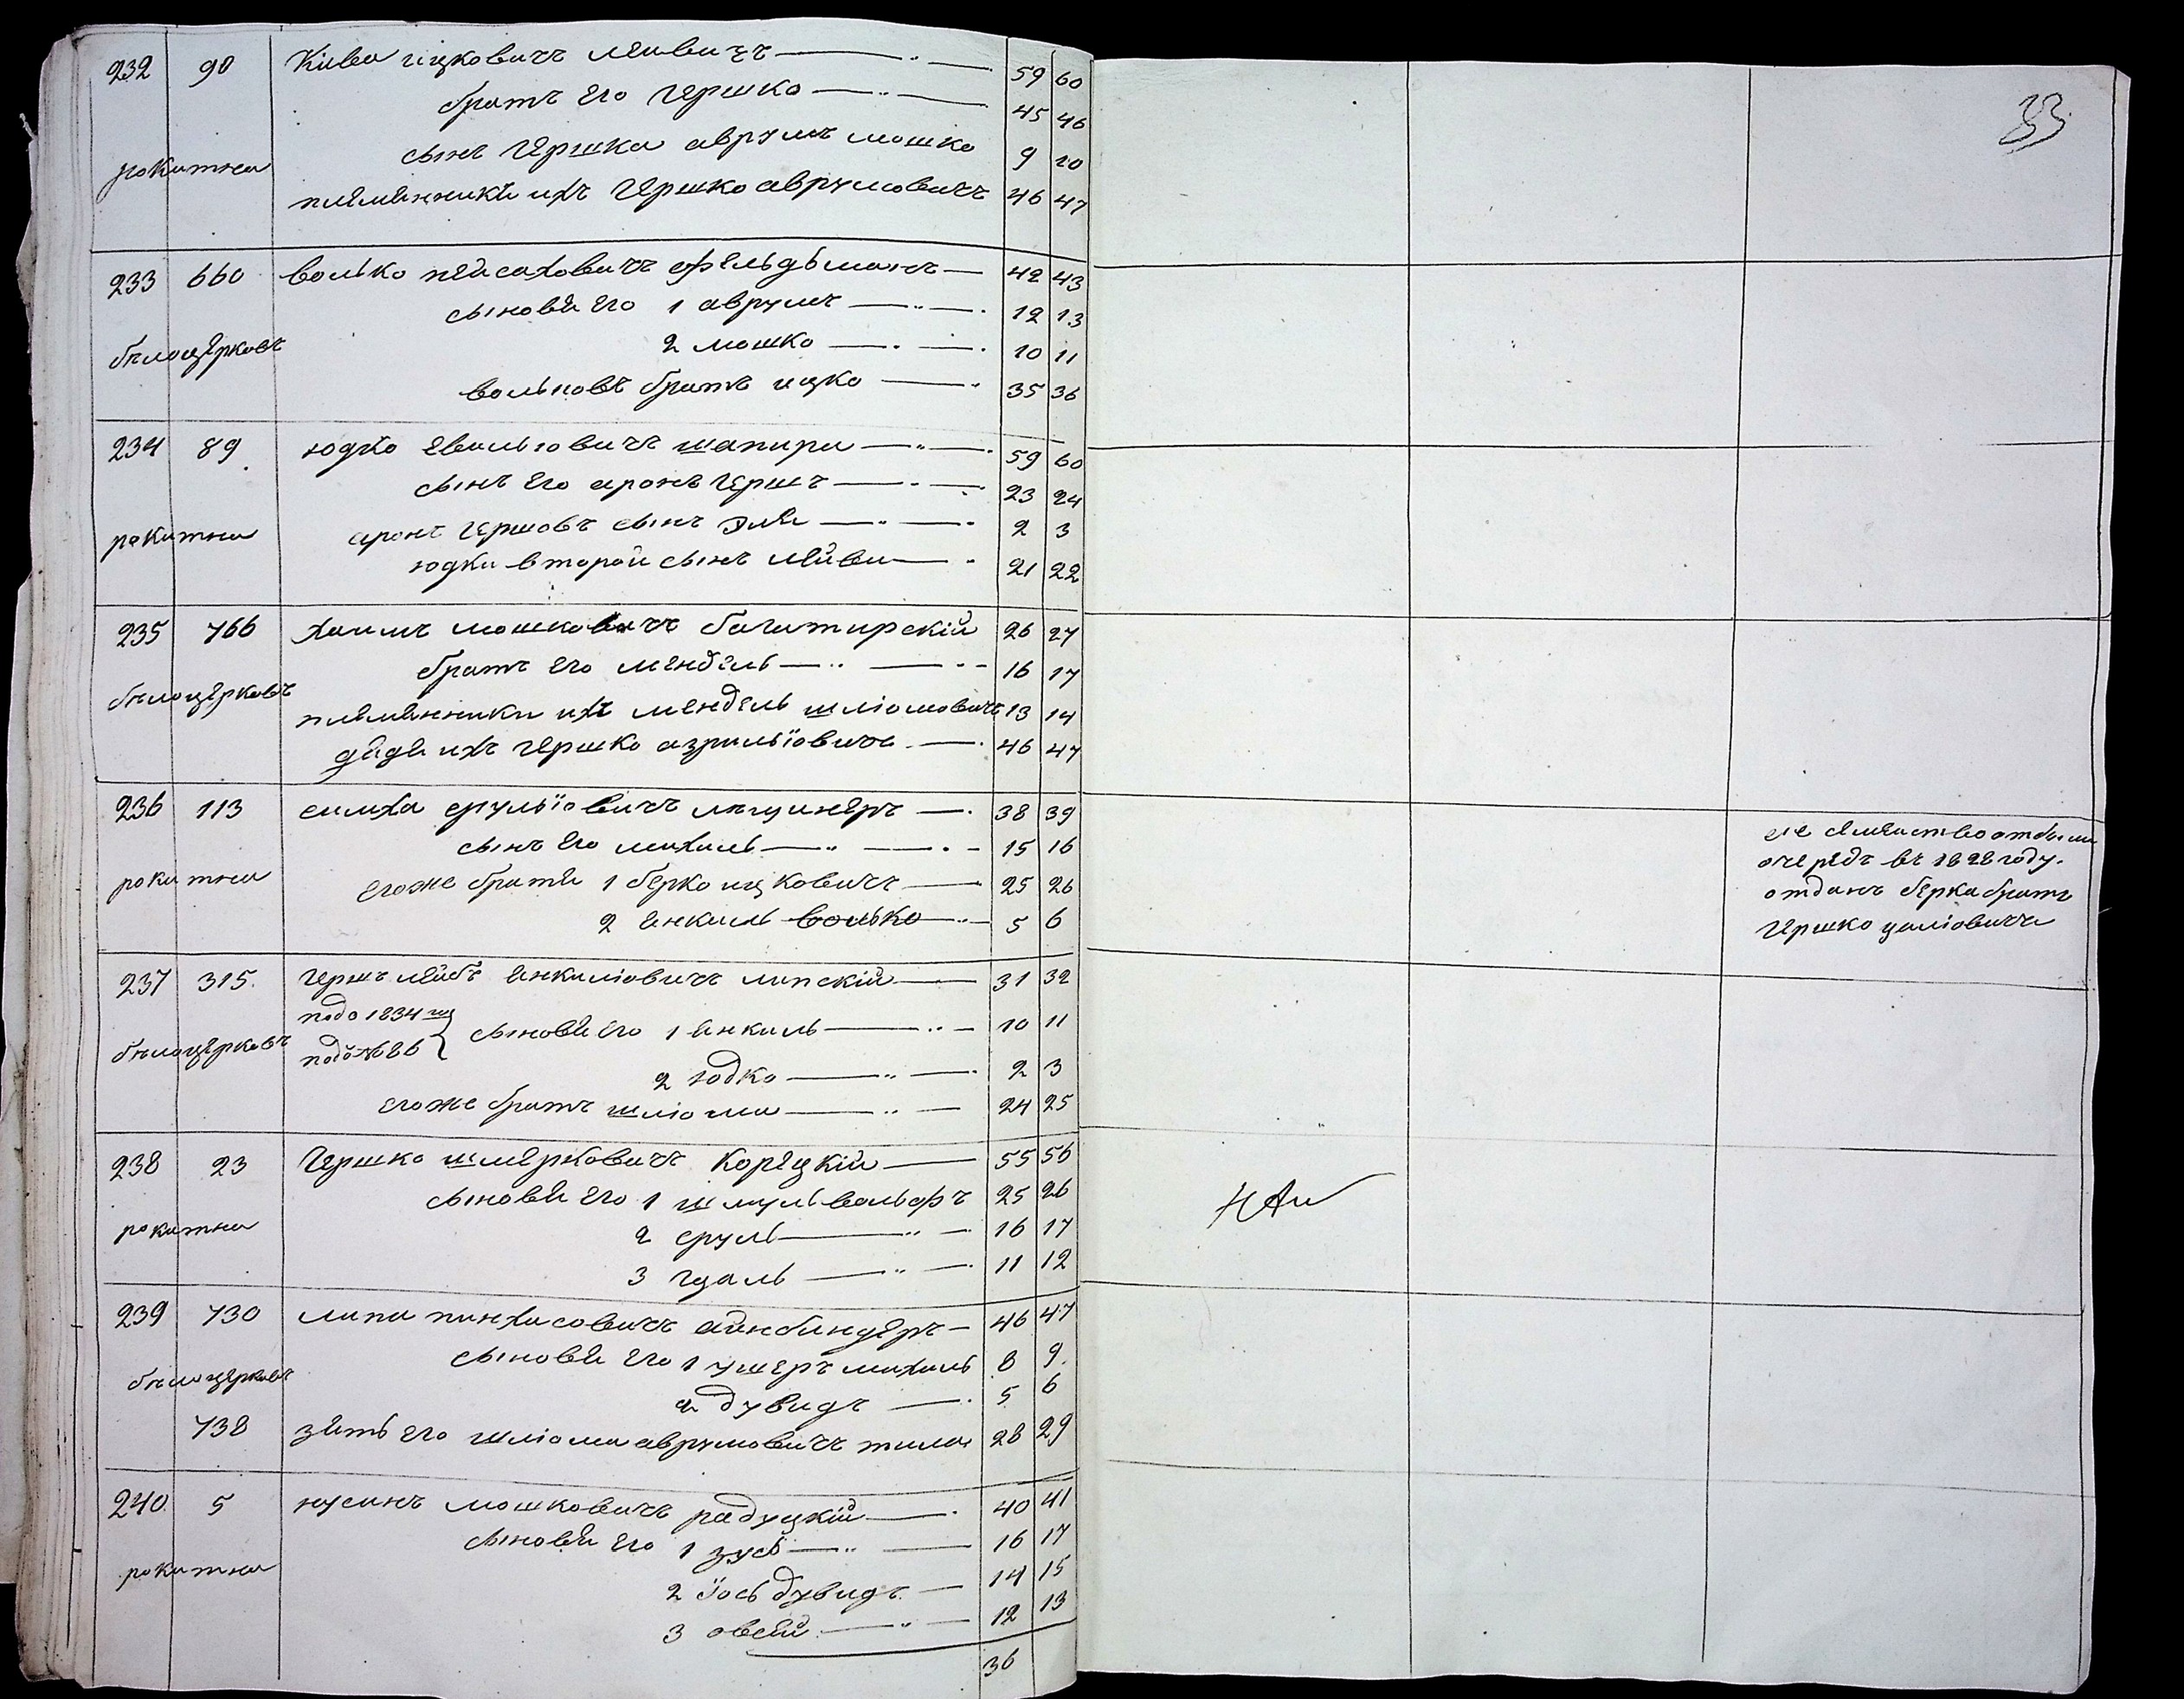 33
232 90 Кива ицковичъ лейвицъ 59 60
братъ его Гершко 45 46
сынъ Гершка аврумъ мошко 9 10
рокитна
племянники ихъ Гершко аврумовичъ 46 47
233 660 волько пейсаховичъ фельдьманъ 42 43
сыновя его 1 аврумъ 12 13
белоцерковъ
2 мошко 10 11
вольковъ братъ ицко 35 36
234 89 юдко шапира 59 60
сынъ его аронъ Гершъ 23 24
рокитна
аронъ Гершовъ сынъ эля 2 3
юдки второй сынъ лейва 21 22
235 766 хаимъ мошковичъ багатирскій 26 27
братъ его мендель 16 17
белоцерковъ
племянники ихъ мендель шліомовичъ 13 14
дядя ихъ гершко азрильіовичъ 46 47
236 113 симха срульіовичъ 38 39
сынъ его михаль 15 16
рокитна
егоже братя 1 берко ицковичъ 25 26
2 янкиль волько 5 6
сие семейство отбыли
очередь въ 1828 году.
отданъ берка братъ
Гершко
237 315. гершъ лейбъ янкиліовичъ липскій 31 32
подъ 1834
сыновя его 1 янкиль 10 11
белоцерковъ
подъ №26
2 юдко 2 3
егоже братъ шліома 24 25
238 23 Гершко шмерковичъ корецкій 55 56
сыновя его 1 шмуль вольфъ 25 26
рокитна
2 сруль 16 17
3 гдаль 11 12
239 730 липа пинхасовичъ айнбиндеръ 46 47
сыновя его 1 ушеръ михаль 8 9.
белоцерковъ
2 дувидъ 5 6
738 зять его шліома аврумовичъ 28 29
240. 5 нусинъ мошковичъ радуцкій 40 41
сыновя его 1 зусь 16 17
рокитна
2 іось дувидъ 14 15
3 овсей 12 13
36